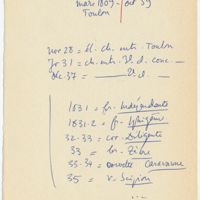 mars 1809 - oct 59
Toulon
nov 28 = El. ch. ents. Toulon
Jr 31 = ch. ents. Vd. conc —
Dec 37 = — Vd. —
1831 = fr. Indépendante
1831-2 = fr. Iphigénie
32-33 = cor. Diligente
33 = br. Zèbre
33-34 = corvette Caravane
35 = v. Scipion